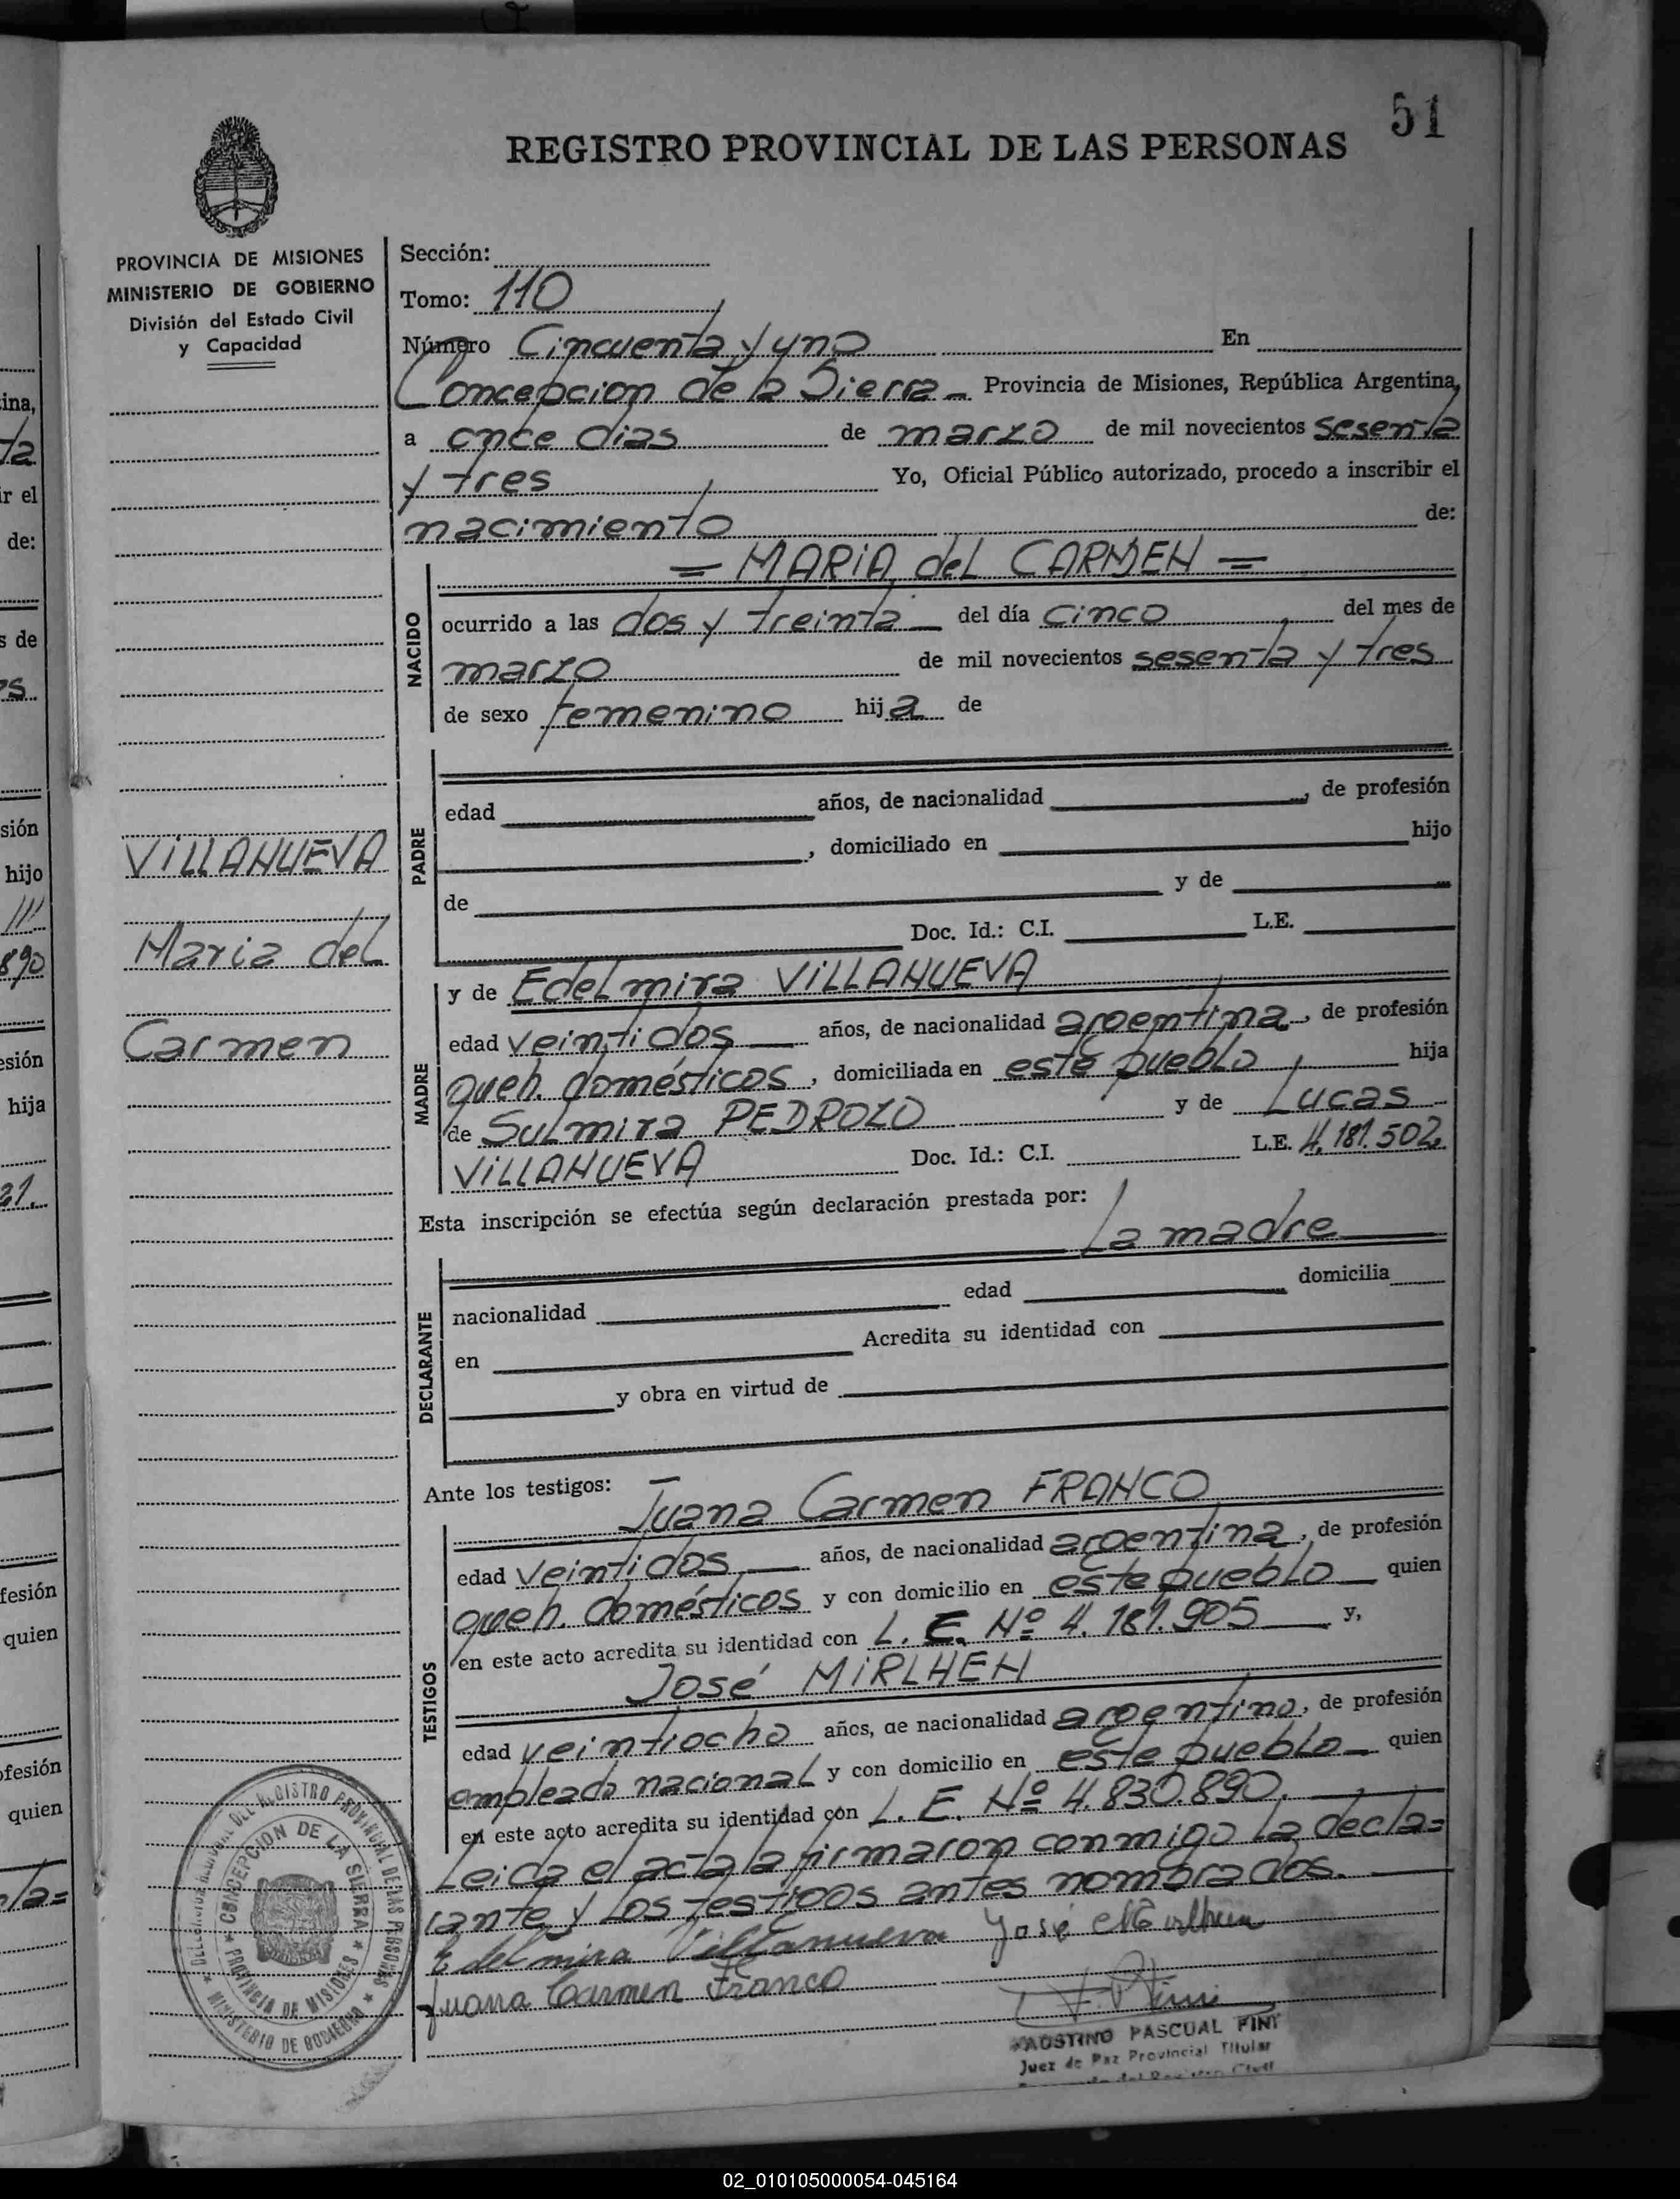 51
REGISTRO PROVINCIAL DE LAS PERSONAS
PROVINCIA DE MISIONES
MINISTERIO DE GOBIERNO
División del Estado Civil
y Capacidad
VILLANUEVA
Maria del
Carmen
Sección:
Tomo: 110
Número Cincuenta y uno En
Concepcion de la Sierra Provincia de Misiones, República Argentina,
a once dias de marzo de mil novecientos sesenta
y tres Yo, Oficial Público autorizado, procedo a inscribir el
nacimiento de:
= MARIA del CARMEN =
NACIDO
ocurrido a las dos y treinta del día cinco del mes de
marzo de mil novecientos sesenta y tres
de sexo femenino hija de
PADRE
edad años, de nacionalidad , de profesión
, domiciliado en hijo
de y de
Doc. Id.: C.I. L.E.
MADRE
y de Edelmira VILLANUEVA
edad veintidos años, de nacionalidad argentina, de profesión
queh. domésticos, domiciliada en este pueblo hija
de Sulmira PEDROZO y de Lucas
VILLANUEVA Doc. Id.: C.I. L.E. 4.181.502
Esta inscripción se efectúa según declaración prestada por:
La madre
DECLARANTE
nacionalidad edad domicilia
en Acredita su identidad con
y obra en virtud de
Ante los testigos:
Juana Carmen FRANCO
TESTIGOS
edad veintidos años, de nacionalidad argentina, de profesión
queh. domésticos y con domicilio en este pueblo quien
en este acto acredita su identidad con L. E. Nº 4.181.905 y,
José MIRLHEN
edad veintiocho años, de nacionalidad argentino, de profesión
empleado nacional y con domicilio en este pueblo quien
en este acto acredita su identidad con L. E. Nº 4.830.890.
Leida el acta la firmaron conmigo la decla=
rante y los testigos antes nombrados.
Edelmira Villanueva José Mirlhen
Juana Carmen Franco
FAOSTINO PASCUAL FINI
Juez de Paz Provincial Titular
DEL REGISTRO PROVINCIAL DE LAS PERSONAS
MINISTERIO DE GOBIERNO
CONCEPCION DE LA SIERRA
PROVINCIA DE MISIONES
ina,
ta
ir el
de:
s de
es
sión
hijo
890
esión
hija
21.
fesión
quien
ofesión
quien
la=
02_010105000054-045164